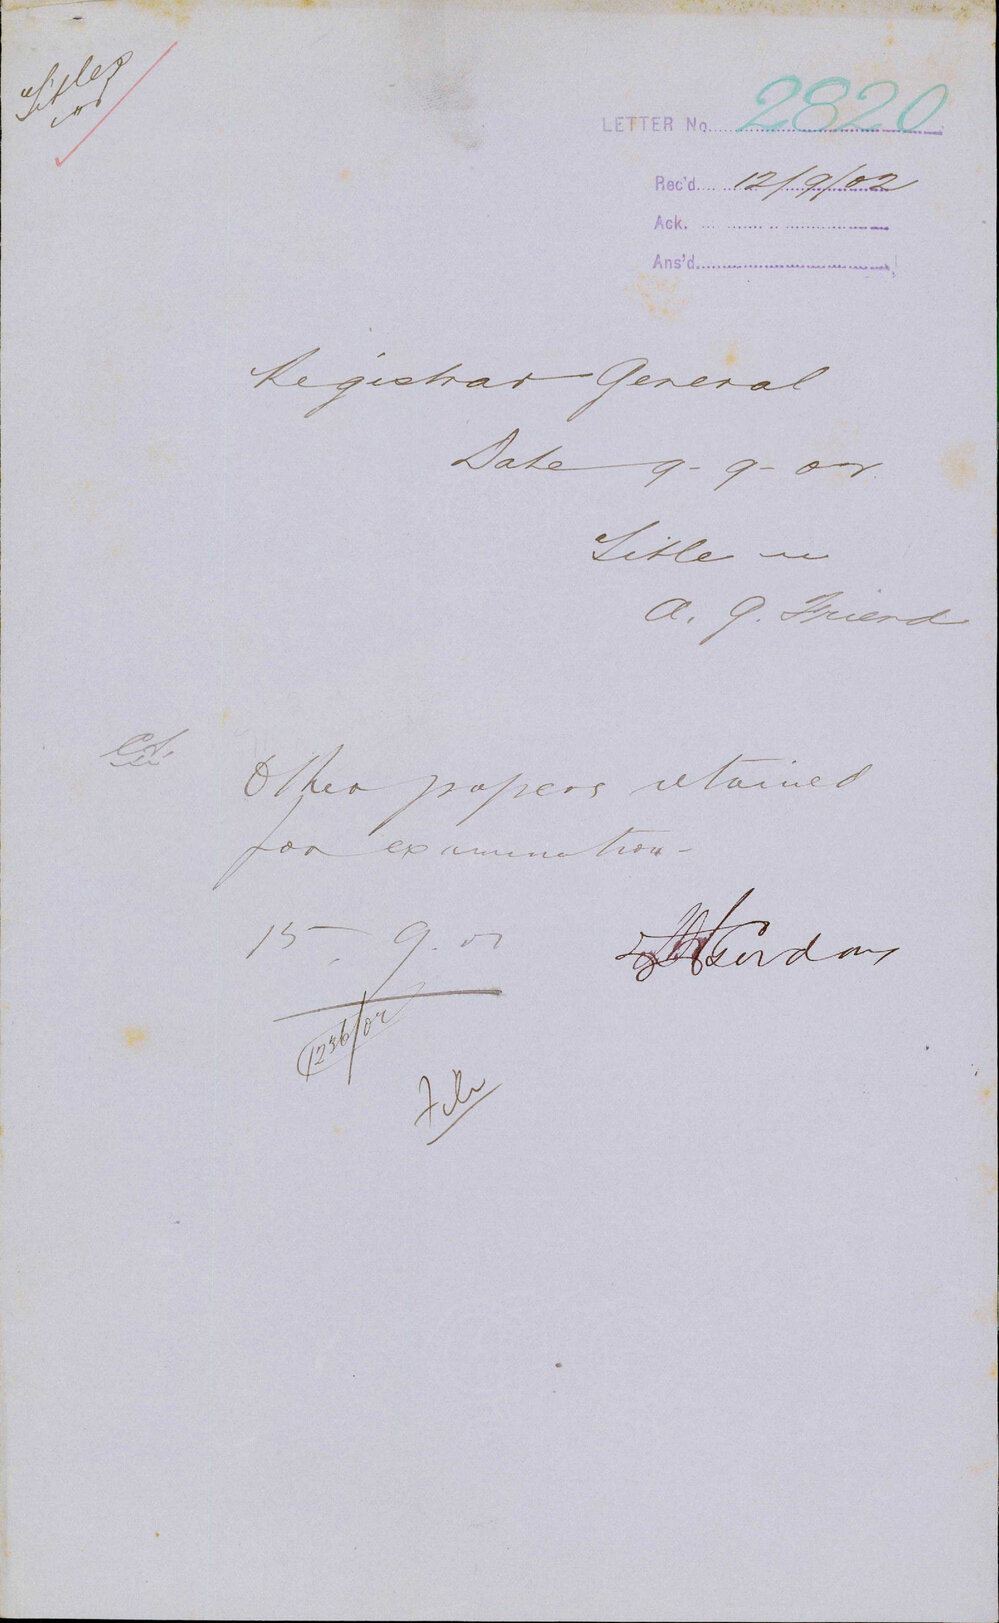 Titles
LETTER No. 2820
Rec'd. 12/9/02
Ack.
Ans'd.
Registrar General
Date 9-9-02
Title re
A. G. Friend
Other papers retained
for examination-
15. 9. 02
Gordon
1236/02
File